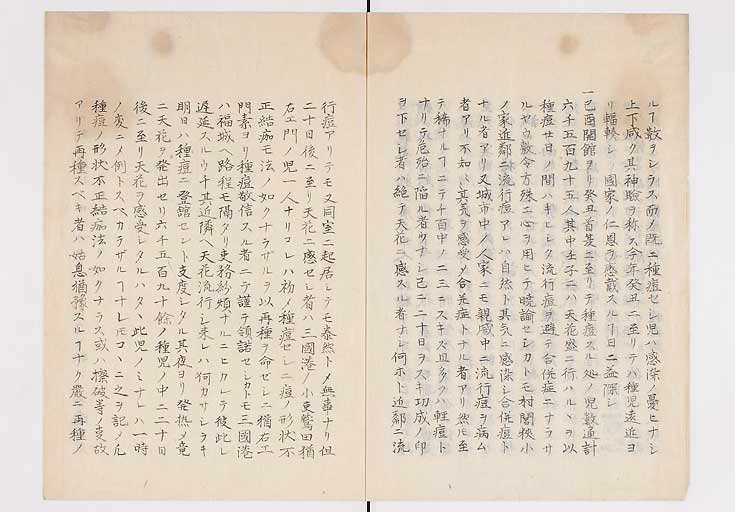 ルヿ數ヲシラス而ノ既ニ種痘セシ児ハ感染ノ憂ヒナシ
上下咸ク其神驗ヲ称ス今年癸丑ニ至リテハ種児遠近ヨ
リ輻輳シ國家ノ仁恩ヲ感戴スルヿ日ニ益隆シ
一己酉開館ヨリ癸丑首夏ニ至リテ種痘スル処ノ児數通計
六千五百九十五人其中壬子ニハ天花盛ニ行ハルヽヲ以
種痘廿日ノ間ハキビシク流行痘ヲ避テ合併症ニナラサ
ルヤウ數令方殊ニ心ヲ用ヒテ暁諭セシカトモ村閭狹小
ノ家近鄰ニ流行痘アレハ自然ト其気ニ感染シ合併痘ト
ナル者アリ又城市中ノ人家ニモ親戚中ニ流行痘ヲ病ム
者アリ不知〻其気ヲ感受メ合并症トナル者アリ然𪜈至
テ稀ナルヿニテ千百中ノ二三ニスキス且多クハ軽痘ト
ナリテ危殆ニ陥ル者少ナシ已ニ二十日ヲスキ功成ノ印
ヲ下セシ者ハ絶テ天花ニ感スル者ナシ何ホト近鄰ニ流
行痘アリテモ又同室ニ起居シテモ泰然トメ無事ナリ但
二十日後ニ至リ天花ニ感セシ者ハ三國港ノ小吏鷲田猶
右エ門ノ児一人ナリコレハ初メ種痘セシニ痘ノ形状不
正結痂モ法ノ如クナラサルヲ以再種ヲ命ゼシニ猶右エ
門素ヨリ種痘敬信スル者ニテ謹テ領諾セシカトモ三國港
ハ福城ヘ路程モ隔タリ吏務紛煩ナルニヒカレテ彼此レ
遅延スルウチ其近隣ヘ天花流行シ来レハ何カサシヲキ
明日ハ種痘ニ登館セント支度シタル其夜ヨリ発熱メ竟
ニ天花ヲ発出セリ六千五百九十餘ノ種児ノ中二十日
後ニ至リ天花ヲ感受シタルハタヽ此児ノミナレハ一時
ノ変ニメ例トスヘカラザルヿナレ𪜈コヽニ之ヲ記メ凡
種痘ノ形状不正結痂法ノ如クナラス或ハ擦破等ノ変故
アリテ再種スベキ者ハ姑息猶豫スルヿナク嚴ニ再種ノ